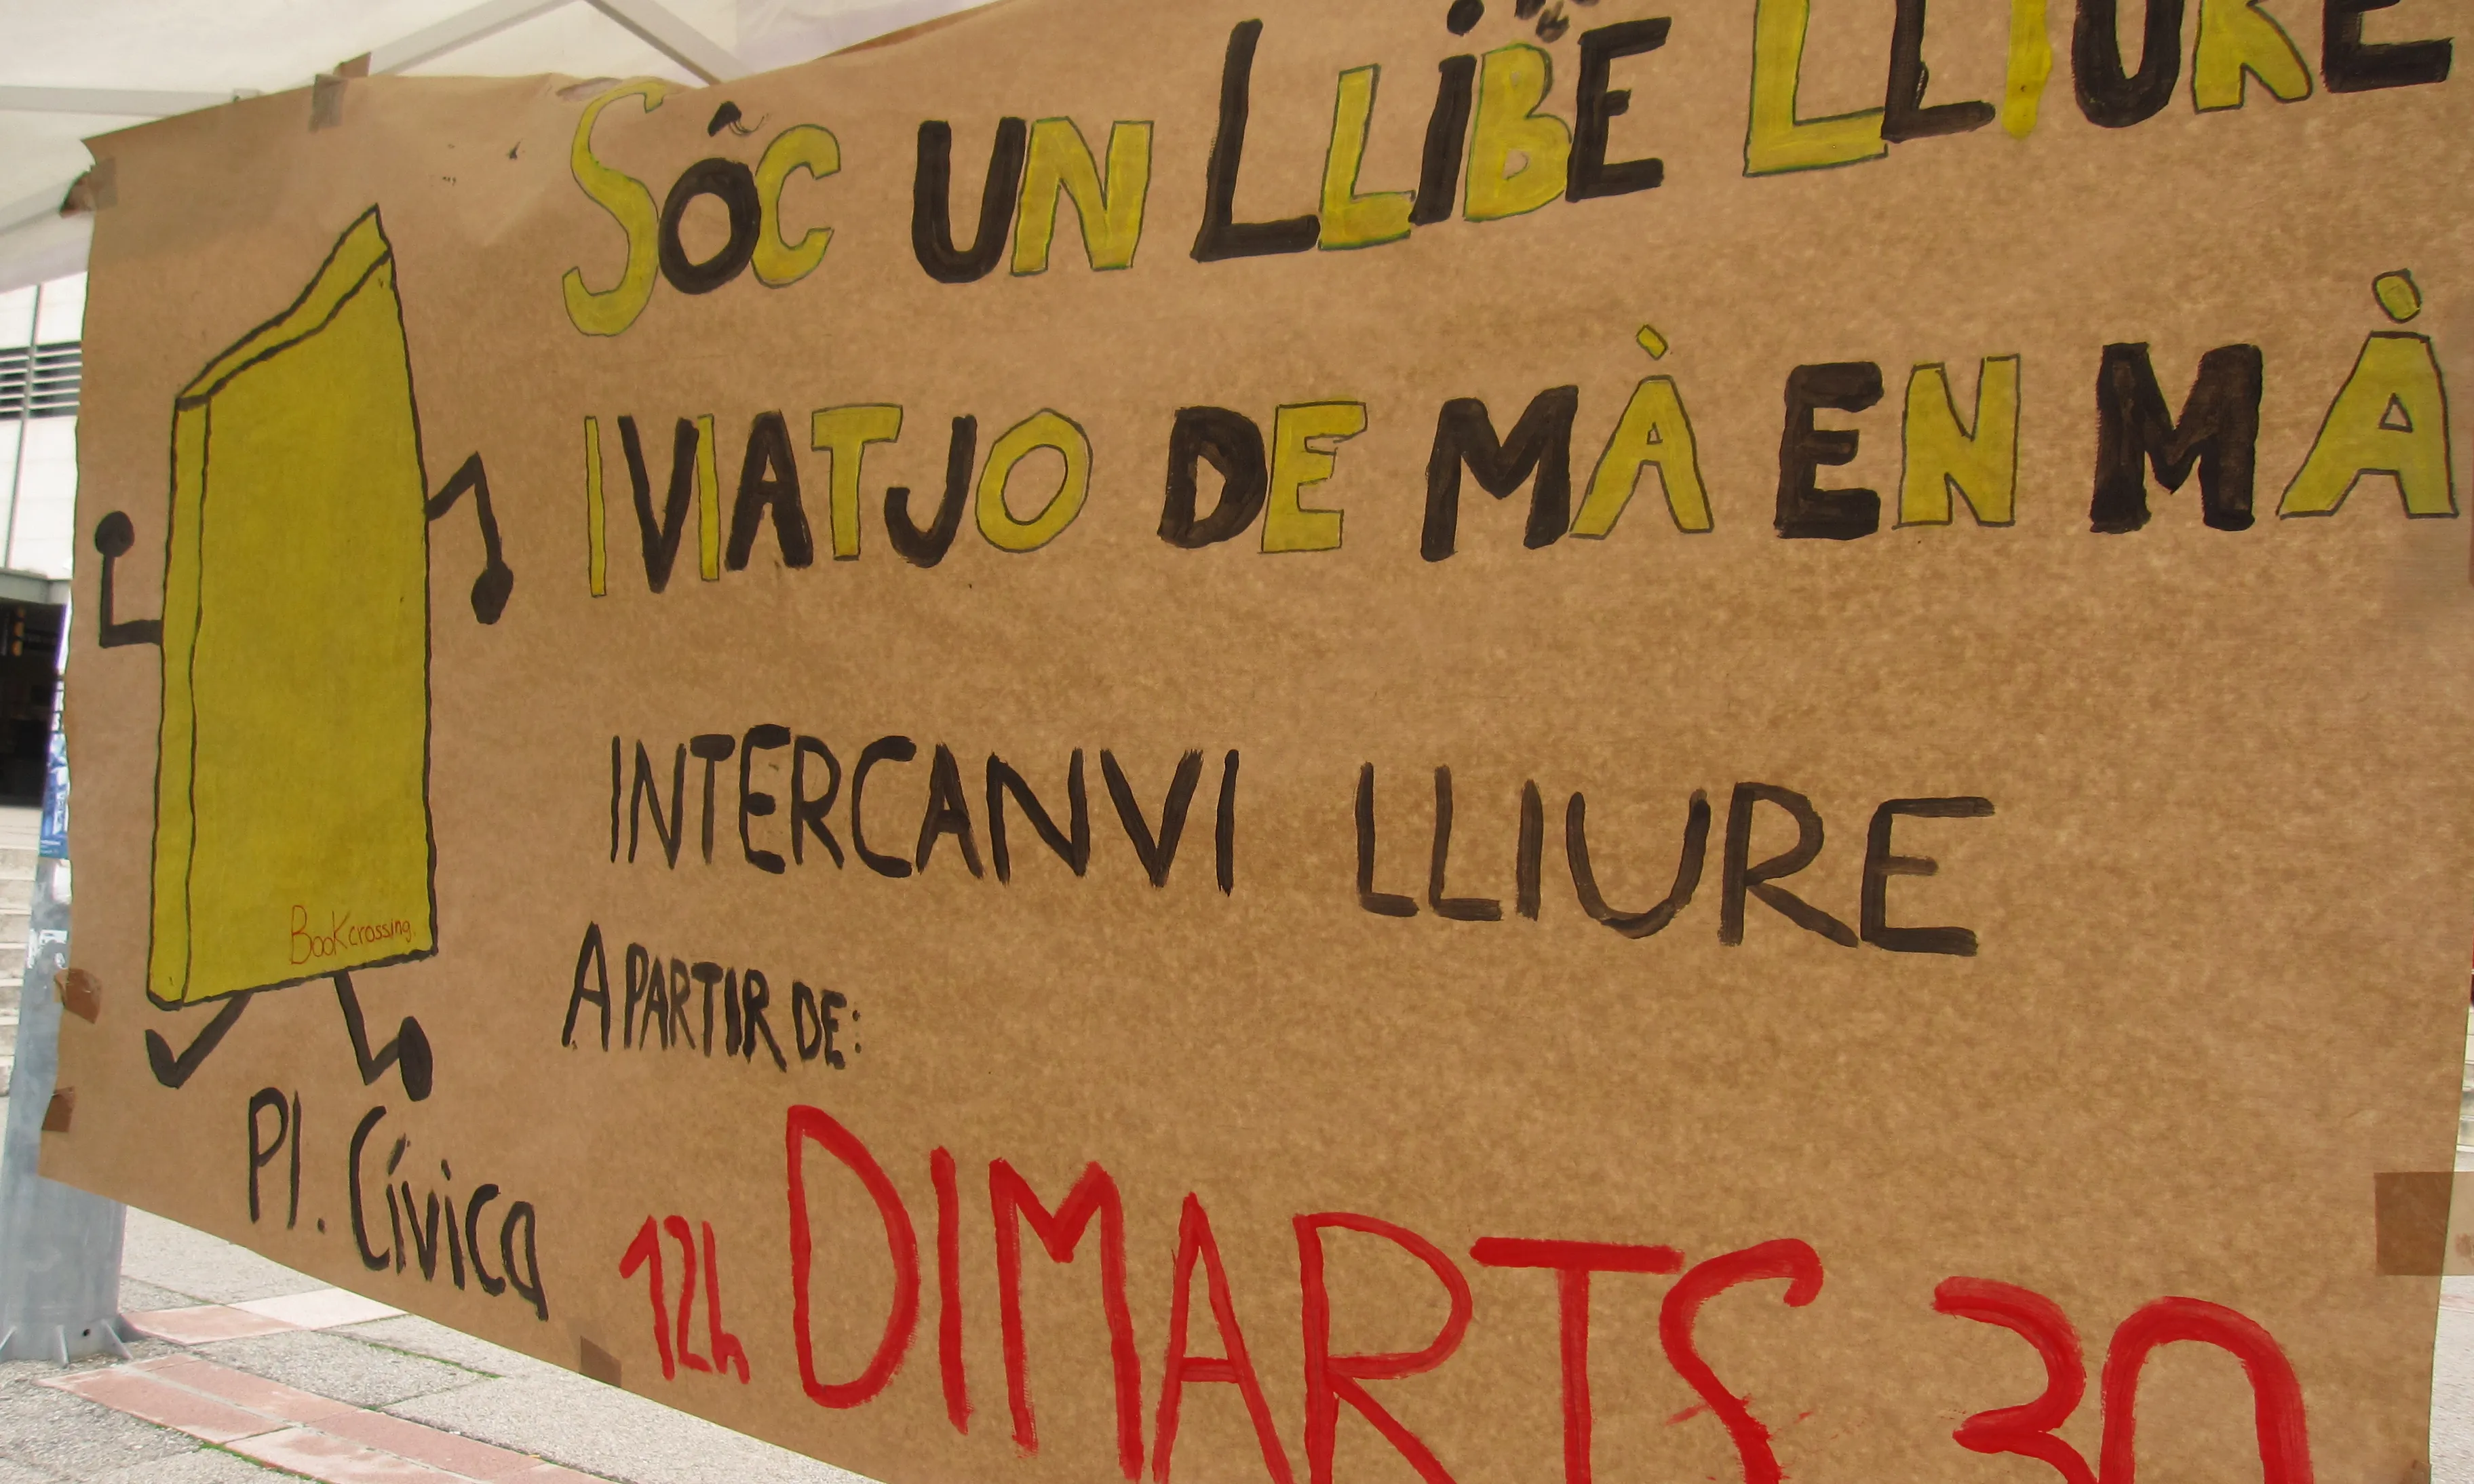 SÓC UN LLIBE LLIURE
I VIATJO DE MÀ EN MÀ
INTERCANVI LLIURE
Bookcrossing.
A PARTIR DE:
Pl. Cívica
12h DIMARTS 30